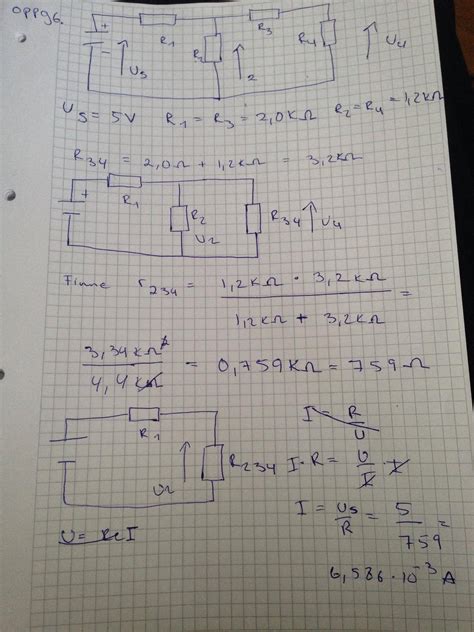 oppg6.
+ R1 R3
- U5 R2 2 R4 U4
U5 = 5V R1 = R3 = 2,0KΩ R2 = R4 = 1,2KΩ
R34 = 2,0Ω + 1,2KΩ = 3,2KΩ
+ R1
R2 U2 R34 U4
Finne r234 = 1,2KΩ · 3,2KΩ / 1,2KΩ + 3,2KΩ =
3,34KΩ² / 4,4KΩ = 0,759KΩ = 759Ω
R1 I = R / U
U2 R234 I · R = U / I
U = R I I = U5 / R = 5 / 759 =
6,586 · 10⁻³ A